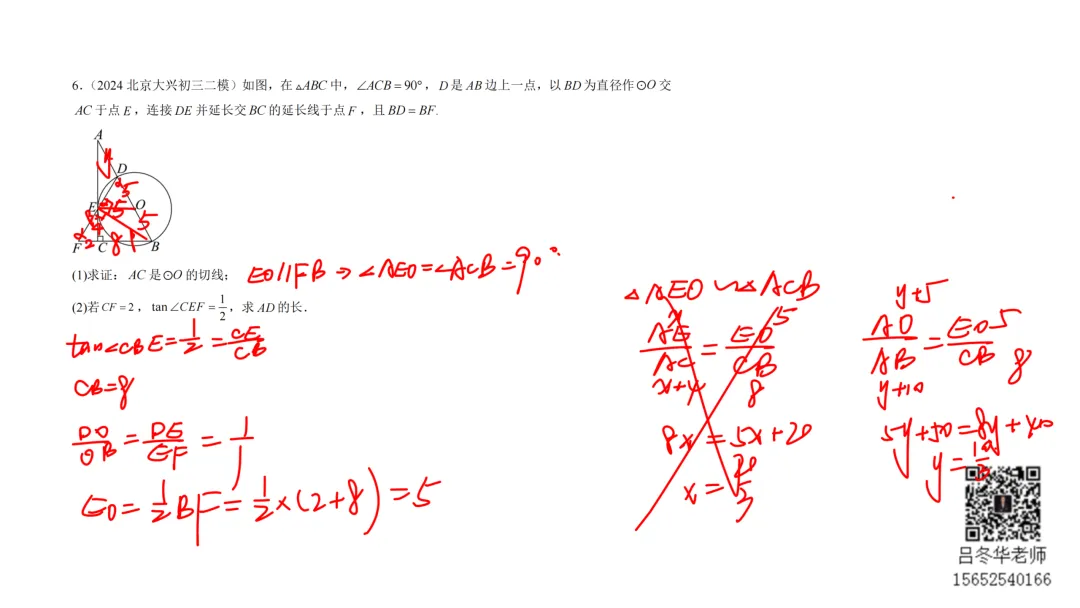 6.（2024 北京大兴初三二模）如图，在 △ABC 中，∠ACB = 90°，D 是 AB 边上一点，以 BD 为直径作 ⊙O 交
AC 于点 E，连接 DE 并延长交 BC 的延长线于点 F，且 BD = BF.
A
y
D
5
E 5 O
4 5
F 2 C 8 B
(1)求证：AC 是 ⊙O 的切线；
EO//FB ⇒ ∠AEO=∠ACB=90°
(2)若 CF = 2，tan∠CEF = 1/2，求 AD 的长.
tan∠CBE = 1/2 = CE/CB
CB=8
DO/OB = DE/EF = 1/1
EO = 1/2 BF = 1/2 ×(2+8) = 5
△AEO ∽ △ACB
x 5
AE/AC = EO/CB
x+4 8
8x = 5x+20
x = 20/3
y+5
AO/AB = EO/CB 5 8
y+10
5y+50=8y+40
y = 10/3
吕冬华老师
15652540166